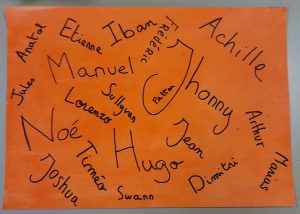 Anatol
Etienne
Iban
Frédéric
Achille
Jules
Manuel
Lorenzo
Sullyvan
Jhonny
Noé
Timéo
Hugo
Jean
Arthur
Joshua
Swann
Dimitri